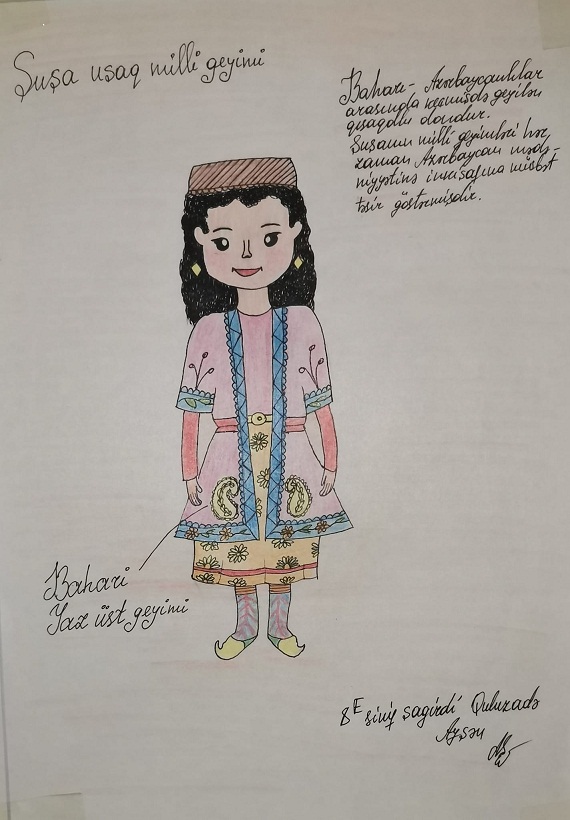 Şuşa uşaq milli geyimi
Bahari - Azərbaycanlılar
arasında keçmişdə geyilən
qısaqollu dondur.
Şuşanın milli geyimləri hər
zaman Azərbaycan mədə-
niyyətinə inkişafına müsbət
təsir göstərmişdir.
Bahari
Yaz üst geyimi
8E sinif şagirdi Quluzadə
Ayşən